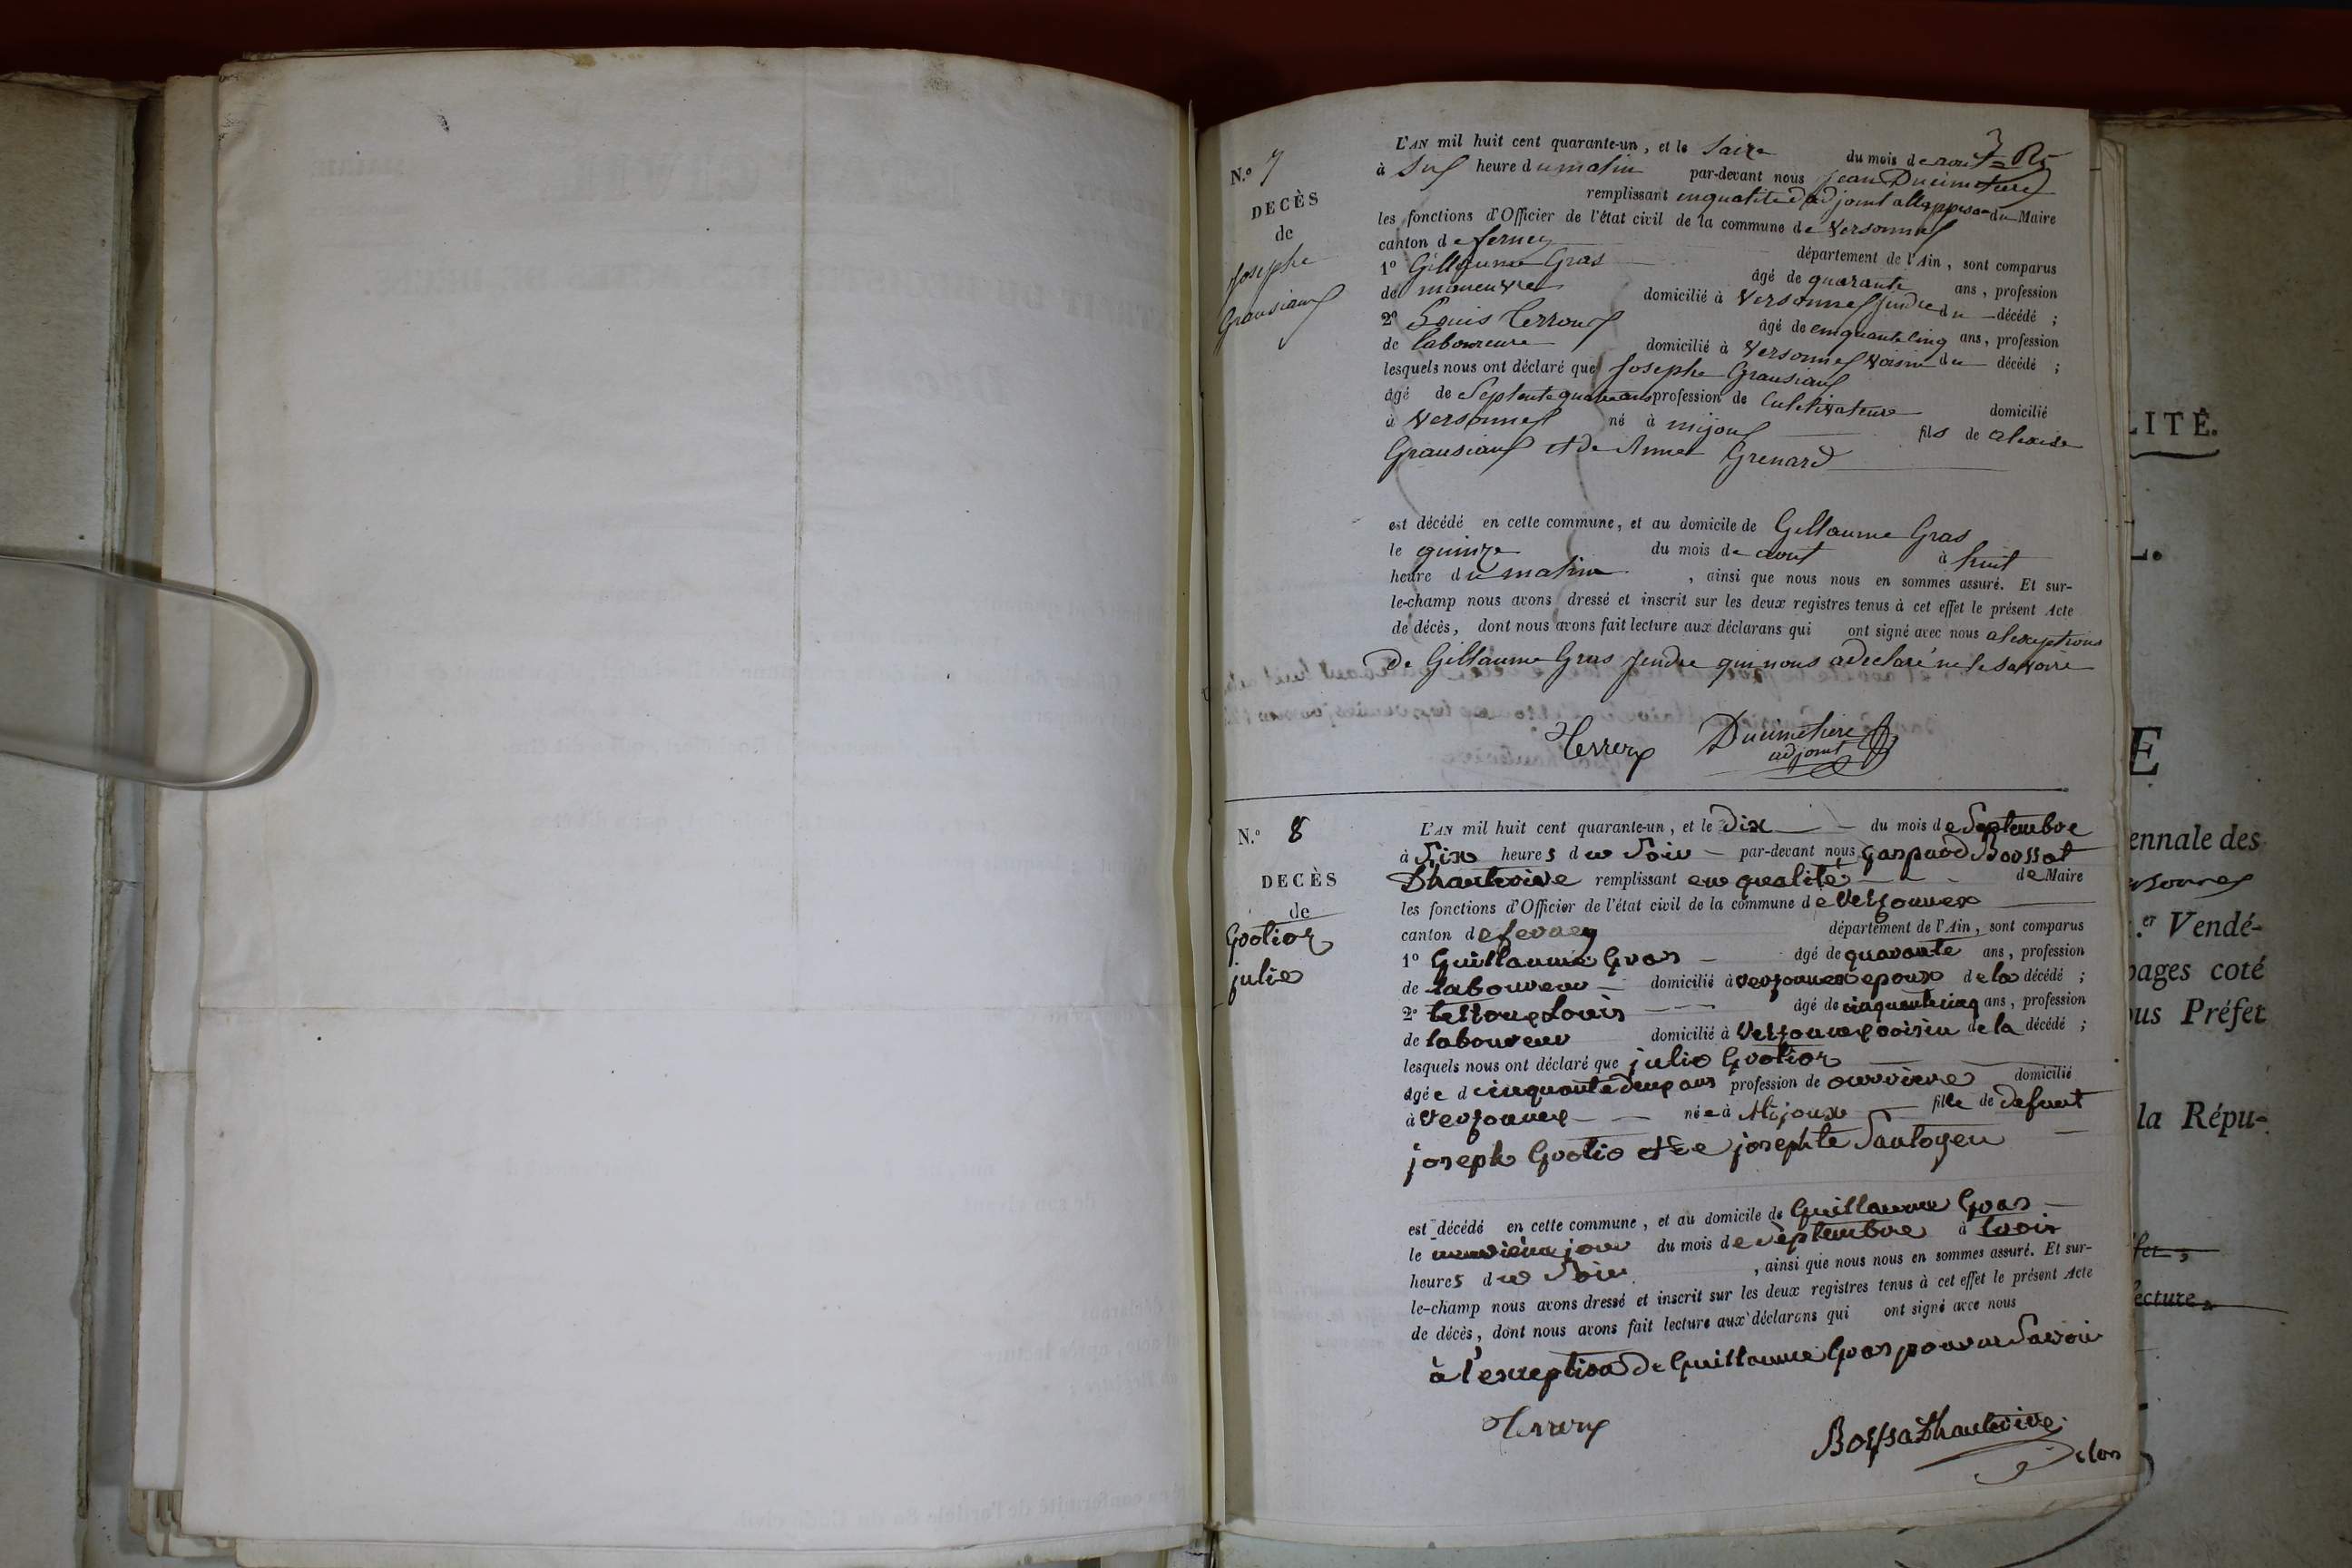 L'AN mil huit cent quarante-un, et le Saize du mois de aout
à Sus heure du matin par-devant nous Jean Ducimetiere
remplissant en qualite dadjoint du Maire
les fonctions d'Officier de l'état civil de la commune de Versonnex
canton de ferney département de l'Ain, sont comparus
1º Gillaume Gras âgé de quarante ans, profession
de maneuvre domicilié à Versonnex Jendre du décédé ;
2º Louis Terroux âgé de cinquante cinq ans, profession
de laboureure domicilié à Versonnex Voisin du décédé ;
lesquels nous ont déclaré que Josephe Grausiaux
âgé de Septente quatre ans profession de Cultivateure domicilié
à Versonnex né à mijoux fils de
Grausiaux et de Anne Grenard
est décédé en cette commune, et au domicile de Gillaume Gras
le quinze du mois de aout à huit
heure du matin , ainsi que nous nous en sommes assuré. Et sur-
le-champ nous avons dressé et inscrit sur les deux registres tenus à cet effet le présent Acte
de décès, dont nous avons fait lecture aux déclarans qui ont signé avec nous alexeptions
de Gillaume Gras Jendre qui nous a declaré ne le savoire
Terroux Ducimetiere
adjoint
N.º 7
DECÈS
de
Josephe
Grausiaux
N.º 8
DECÈS
de
Grotior
julie
L'AN mil huit cent quarante-un, et le Dix du mois de Septembre
à Six heures du Soir par-devant nous gaspard Bossat
Dhauterive remplissant en qualité de Maire
les fonctions d'Officier de l'état civil de la commune de Versonnex
canton de ferney département de l'Ain, sont comparus
1º Guillaume Gras âgé de quarante ans, profession
de laboureur domicilié à versonnex epoux de la décédé ;
2º terroux Louis âgé de cinquante cinq ans, profession
de laboureur domicilié à Versonnex voisin de la décédé ;
lesquels nous ont déclaré que julie Grotior
âgée d cinquante deux ans profession de ouvriere domicilié
à Versonnex née à Mijoux fille de defunt
joseph Grotio et de josephte
est décédé en cette commune, et au domicile de Guillaume Gras
le neuvième jour du mois de septembre à trois
heures du Soir , ainsi que nous nous en sommes assuré. Et sur-
le-champ nous avons dressé et inscrit sur les deux registres tenus à cet effet le présent Acte
de décès, dont nous avons fait lecture aux déclarans qui ont signé avec nous
à l'exception de Guillaume Gras pour ne Savoir
Terroux Bossat Dhauterive
clos
LITÉ.
E
ennale des
.er Vendé-
pages coté
ous Préfet
la Répu-
fet,
ecture.